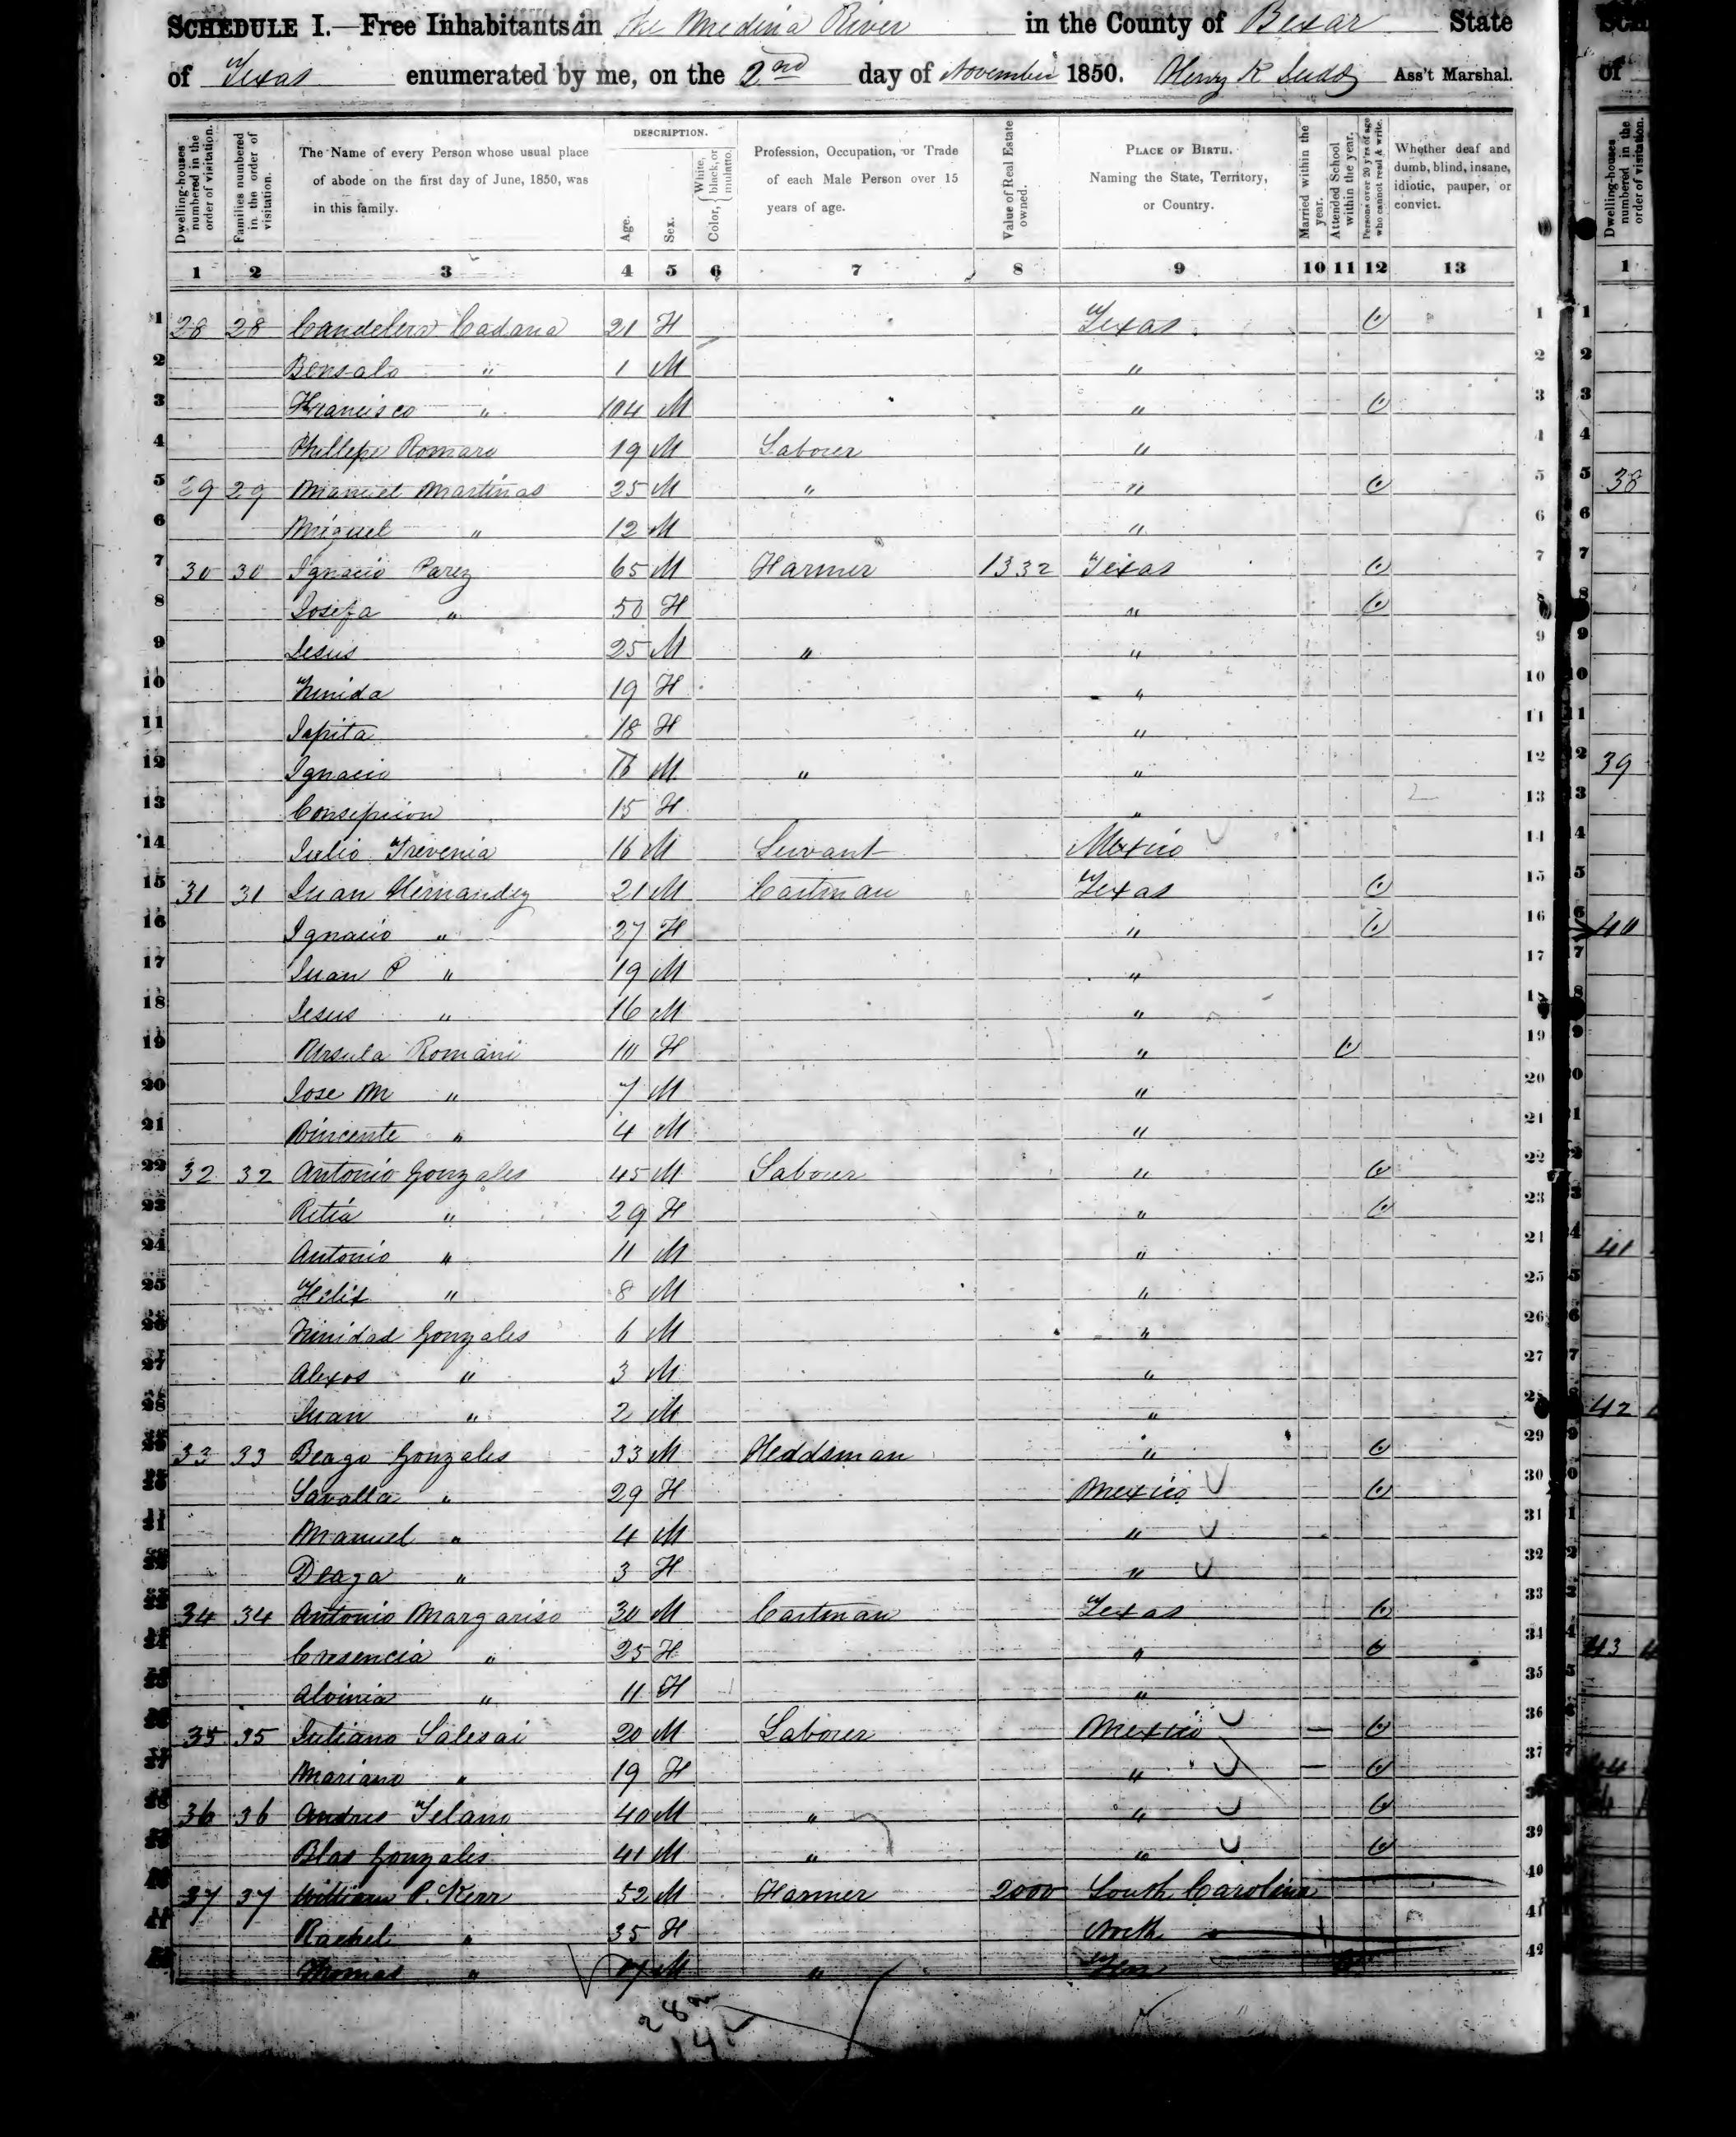 SCHEDULE I.—Free Inhabitants in the Medina River in the County of Bexar State
of Texas enumerated by me, on the 2nd day of November 1850. Henry K Ass't Marshal.
Dwelling-houses numbered in the order of visitation.
Families numbered in the order of visitation.
The Name of every Person whose usual place of abode on the first day of June, 1850, was in this family.
DESCRIPTION.
Age.
Sex.
Color, { White, black, or mulatto.
Profession, Occupation, or Trade of each Male Person over 15 years of age.
Value of Real Estate owned.
PLACE OF BIRTH. Naming the State, Territory, or Country.
Married within the year.
Attended School within the year.
Persons over 20 y'rs of age who cannot read & write.
Whether deaf and dumb, blind, insane, idiotic, pauper, or convict.
1 2 3 4 5 6 7 8 9 10 11 12 13
1 28 28 Candelera Cadana 21 F Texas 1
2 Bensalo " 1 M " 2
3 Francisco " 104 M " 3
4 Phillepe Romaro 19 M Laborer " 4
5 29 29 Manuel Martinas 25 M " " 5
6 Miguel " 12 M " 6
7 30 30 Ignacio Parez 65 M Farmer 1332 Texas 7
8 Josefa " 50 F " 8
9 Jesus 25 M " " 9
10 19 F " 10
11 18 F " 11
12 Ignacio M " " 12
13 Consepcion 15 F " 13
14 Julio Trevenia 16 M Servant Mexico 14
15 31 31 Juan Hernandez 21 M Cartman Texas 15
16 Ignacio " 27 F " 16
17 Juan P " 19 M " 17
18 Jesus " 16 M " 18
19 Ursula Romani 10 F " 19
20 Jose M " 7 M " 20
21 Vincente " 4 M " 21
22 32 32 Antonio Gonzales 45 M Laborer " 22
23 Retia " 29 F " 23
24 Antonio " 11 M " 24
25 Felix " 8 M " 25
26 Trinidad Gonzales 6 M " 26
27 Alexos " 3 M " 27
28 Juan " 2 M " 28
29 33 33 Beago Gonzales 33 M Heddsman " 29
30 Savalla " 29 F Mexico 30
31 Manuel " 4 M " 31
32 Deaga " 3 F " 32
33 34 34 Antonio Margariso 30 M Cartman Texas 33
34 Cresencia " 25 F " 34
35 Alvinia " 11 F " 35
36 35 35 Juliano Salesai 20 M Laborer Mexico 36
37 Mariano " 19 F " 37
38 36 36 Andres Telano 40 M " " 38
39 Blas Gonzales 41 M " " 39
40 37 37 William P. Kerr 52 M Farmer 2000 South Carolina 40
41 Rachel " 35 F North " 41
42 Thomas " M " 42
28
14
38
39
40
41
42
43
44